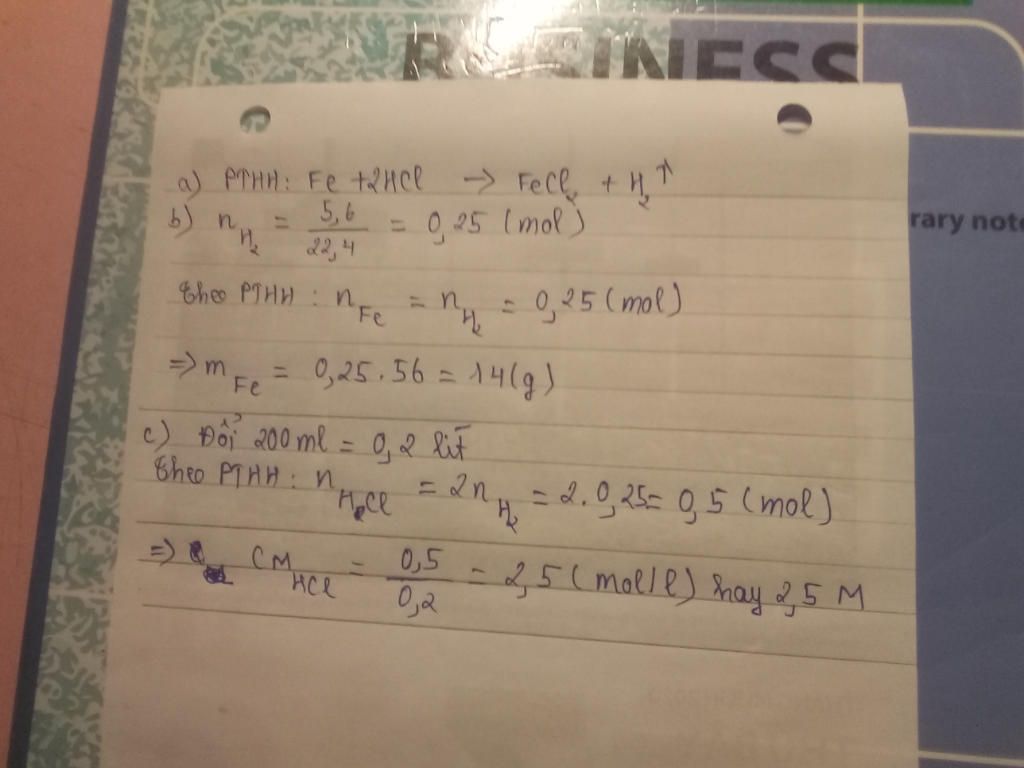 BUSINESS
rary note
a) PTHH: Fe + 2HCl → FeCl₂ + H₂ ↑
b) n H₂ = 5,6 / 22,4 = 0,25 (mol)
theo PTHH : n Fe = n H₂ = 0,25 (mol)
=> m Fe = 0,25 . 56 = 14 (g)
c) Đổi 200 ml = 0,2 lít
theo PTHH : n HCl = 2n H₂ = 2. 0,25 = 0,5 (mol)
=> CM HCl = 0,5 / 0,2 = 2,5 (mol/l) hay 2,5 M